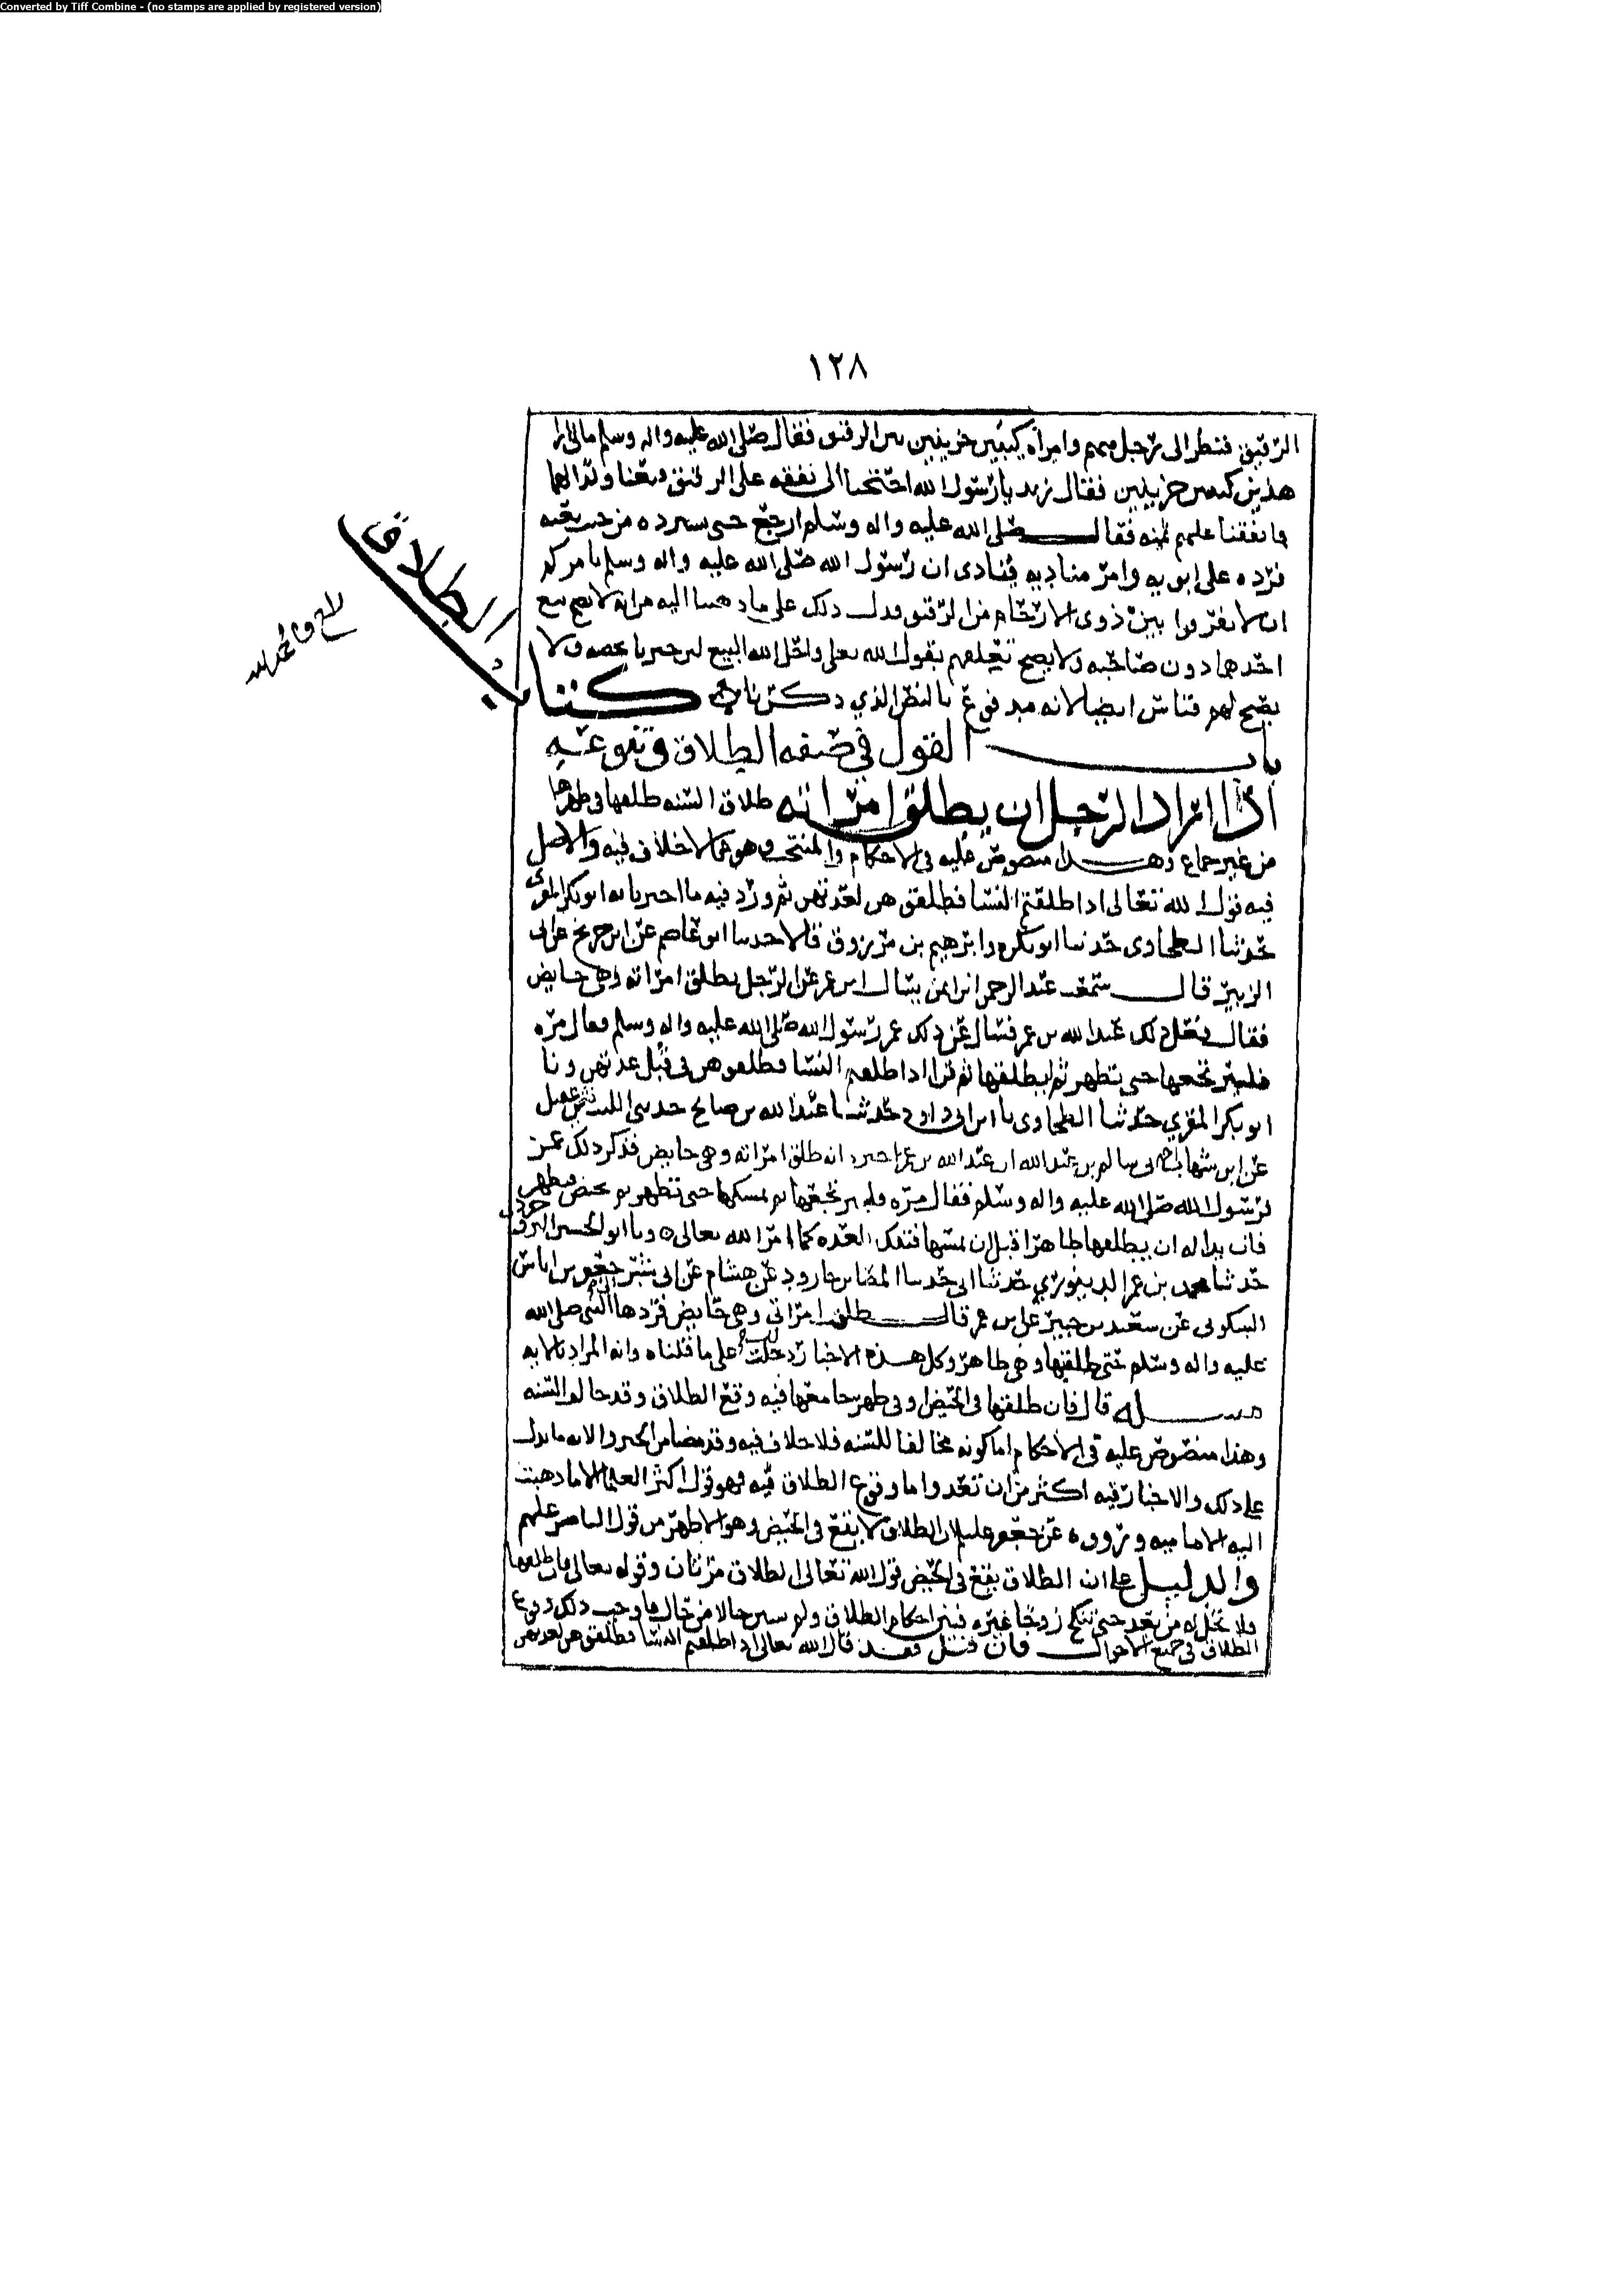 Converted by Tiff Combine - (no stamps are applied by registered version)
١٢٨
الرقيق فنظر الى رجل منهم وامراة كئيبين حزينين من الرقيق فقال صلى الله عليه واله وسلم مالي ارا
هذين كئيبين حزينين فقال زيد يا رسول الله احتجنا الى نفقه على الرقيق فبعنا ولدا لهما
فانفقنا عليهم ثمنه فقال صلى الله عليه واله وسلم ارجع حتى تسترده من حيث بعته
فرده على ابويه وامر مناديه ينادى ان رسول الله صلى الله عليه واله وسلم يامركم
ان لا تفرقوا بين ذوى الارحام من الرقيق فدل ذلك على ما ذهبنا اليه من انه لا يصح بيع
احدهما دون صاحبه ولا يصح تعلقهم بقول الله تعلى واحل الله البيع لانه
يصح لهم قياس ايضا لانه مدفوع بالنظر الذي ذكرنا
كتاب الطلاق
باب القول في صفه الطلاق وتفويعه
اذا اراد الرجل ان يطلق امراته طلاق السنه طلقها في طهرها
من غير جماع وهذا منصوص عليه في الاحكام والمنتخب وهو مما لا خلاف فيه والاصل
فيه قول الله تعالى اذا طلقتم النسا فطلقوهن لعدتهن ثم ورد فيه ما اخبرنا به ابو بكر المقري
حدثنا الطحاوى حدثنا ابو بكره وابرهيم بن مرزوق قالا حدثنا ابو عاصم عن ابن جريج عن ابى
الزبير قال سمعت عبد الرحمن ابن ايمن يسال ابن عمر عن الرجل يطلق امراته وهي حايض
فقال فعل ذلك عبد الله بن عمر فسال عن ذلك عمر رسول الله صلى الله عليه واله وسلم فقال مره
فليرتجعها حتى تطهر ثم ليطلقها ثم قرا اذا طلقتم النسا فطلقوهن في قبل عدتهن ونا
ابو بكر المقري حدثنا الطحاوى نا ابن ابي داود حدثنا عبد الله بن صالح حدثني الليث عن عقيل
عن ابن شهاب اخبرني سالم بن عبد الله ان عبد الله بن عمر اخبره انه طلق امراته وهي حايض فذكر ذلك عمر
لرسول الله صلى الله عليه واله وسلم فقال مره فليرتجعها ثم يمسكها حتى تطهر ثم تحيض فتطهر
فان بدا له ان يطلقها طاهرا قبل ان يمسها فتلك العده كما امر الله تعالى ٥ ونا ابو الحسين البروجردى
حدثنا محمد بن عمر الدينوري حدثنا ابى حدثنا المضا بن جارود عن هشام عن ابي بشر جعفر بن اياس
اليشكوني عن سعيد بن جبير عن ابن عمر قال طلقت امراتي وهي حايض فردها النبي صلى الله
عليه واله وسلم حتى طلقتها وهي طاهر وكل هذه الاخبار دلت على ما قلناه وانه المراد بالايه
مسئله قال فان طلقها في الحيض او في طهر جامعها فيه وقع الطلاق وقد خالف السنه
وهذا منصوص عليه في الاحكام اما كونه مخالفا للسنه فلا خلاف فيه وقد مضا من الخبر والايه ما يدل
على ذلك والاخبار فيه اكثر من ان تعد واما وقوع الطلاق فيه فهو قول اكثر العلما الا ما ذهبت
اليه الاماميه ورووه عن جعفر عليلم ان الطلاق لا يقع في الحيض وهو الاظهر من قول الناصر عليهم
والدليل على ان الطلاق يقع في الحيض قول الله تعالى الطلاق مرتان وقوله تعالى فان طلقها
فلا تحل له من بعد حتى تنكح زوجا غيره فبين احكام الطلاق ولم يستثن حالا من حال فاوجب ذلك وقوع
الطلاق في جميع الاحوال فان قيل فقد قال الله تعالى اذا طلقتم النسا فطلقوهن لعدتهن